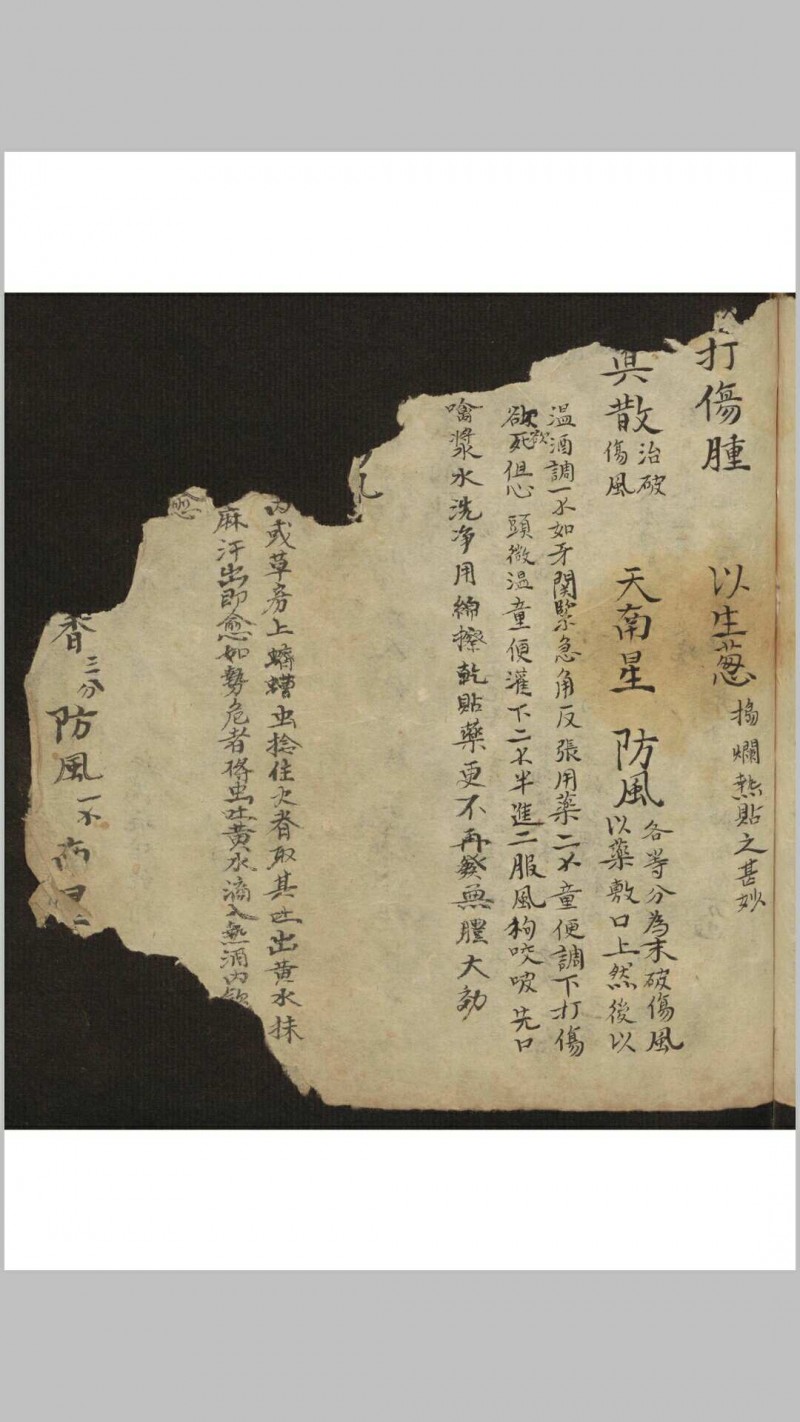 打傷腫 以生葱 搗爛熱貼之甚妙
散 治破傷風 天南星 防風 各等分為末破傷風以藥敷口上然後以
温酒調一不如牙關緊急角反張用藥二不童便調下打傷
欲死但心頭微温童便灌下二不半進二服風狗咬破先口
噙漿水洗净用綿擦乾貼藥更不再發無膿大効
内或草房上蠐螬虫捻住欠脊取其吐出黄水抹
麻汗出即愈如勢危者將虫吐黄水滴入熱酒内飲
愈
香三分 防風一不